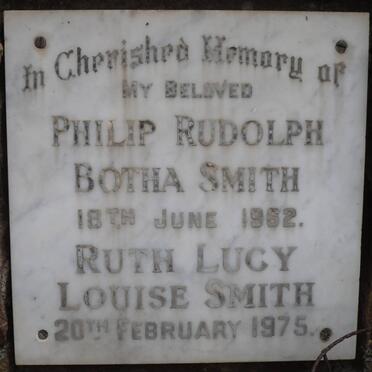 In Cherished Memory of
MY BELOVED
PHILIP RUDOLPH
BOTHA SMITH
18TH JUNE 1962.
RUTH LUCY
LOUISE SMITH
20TH FEBRUARY 1975.